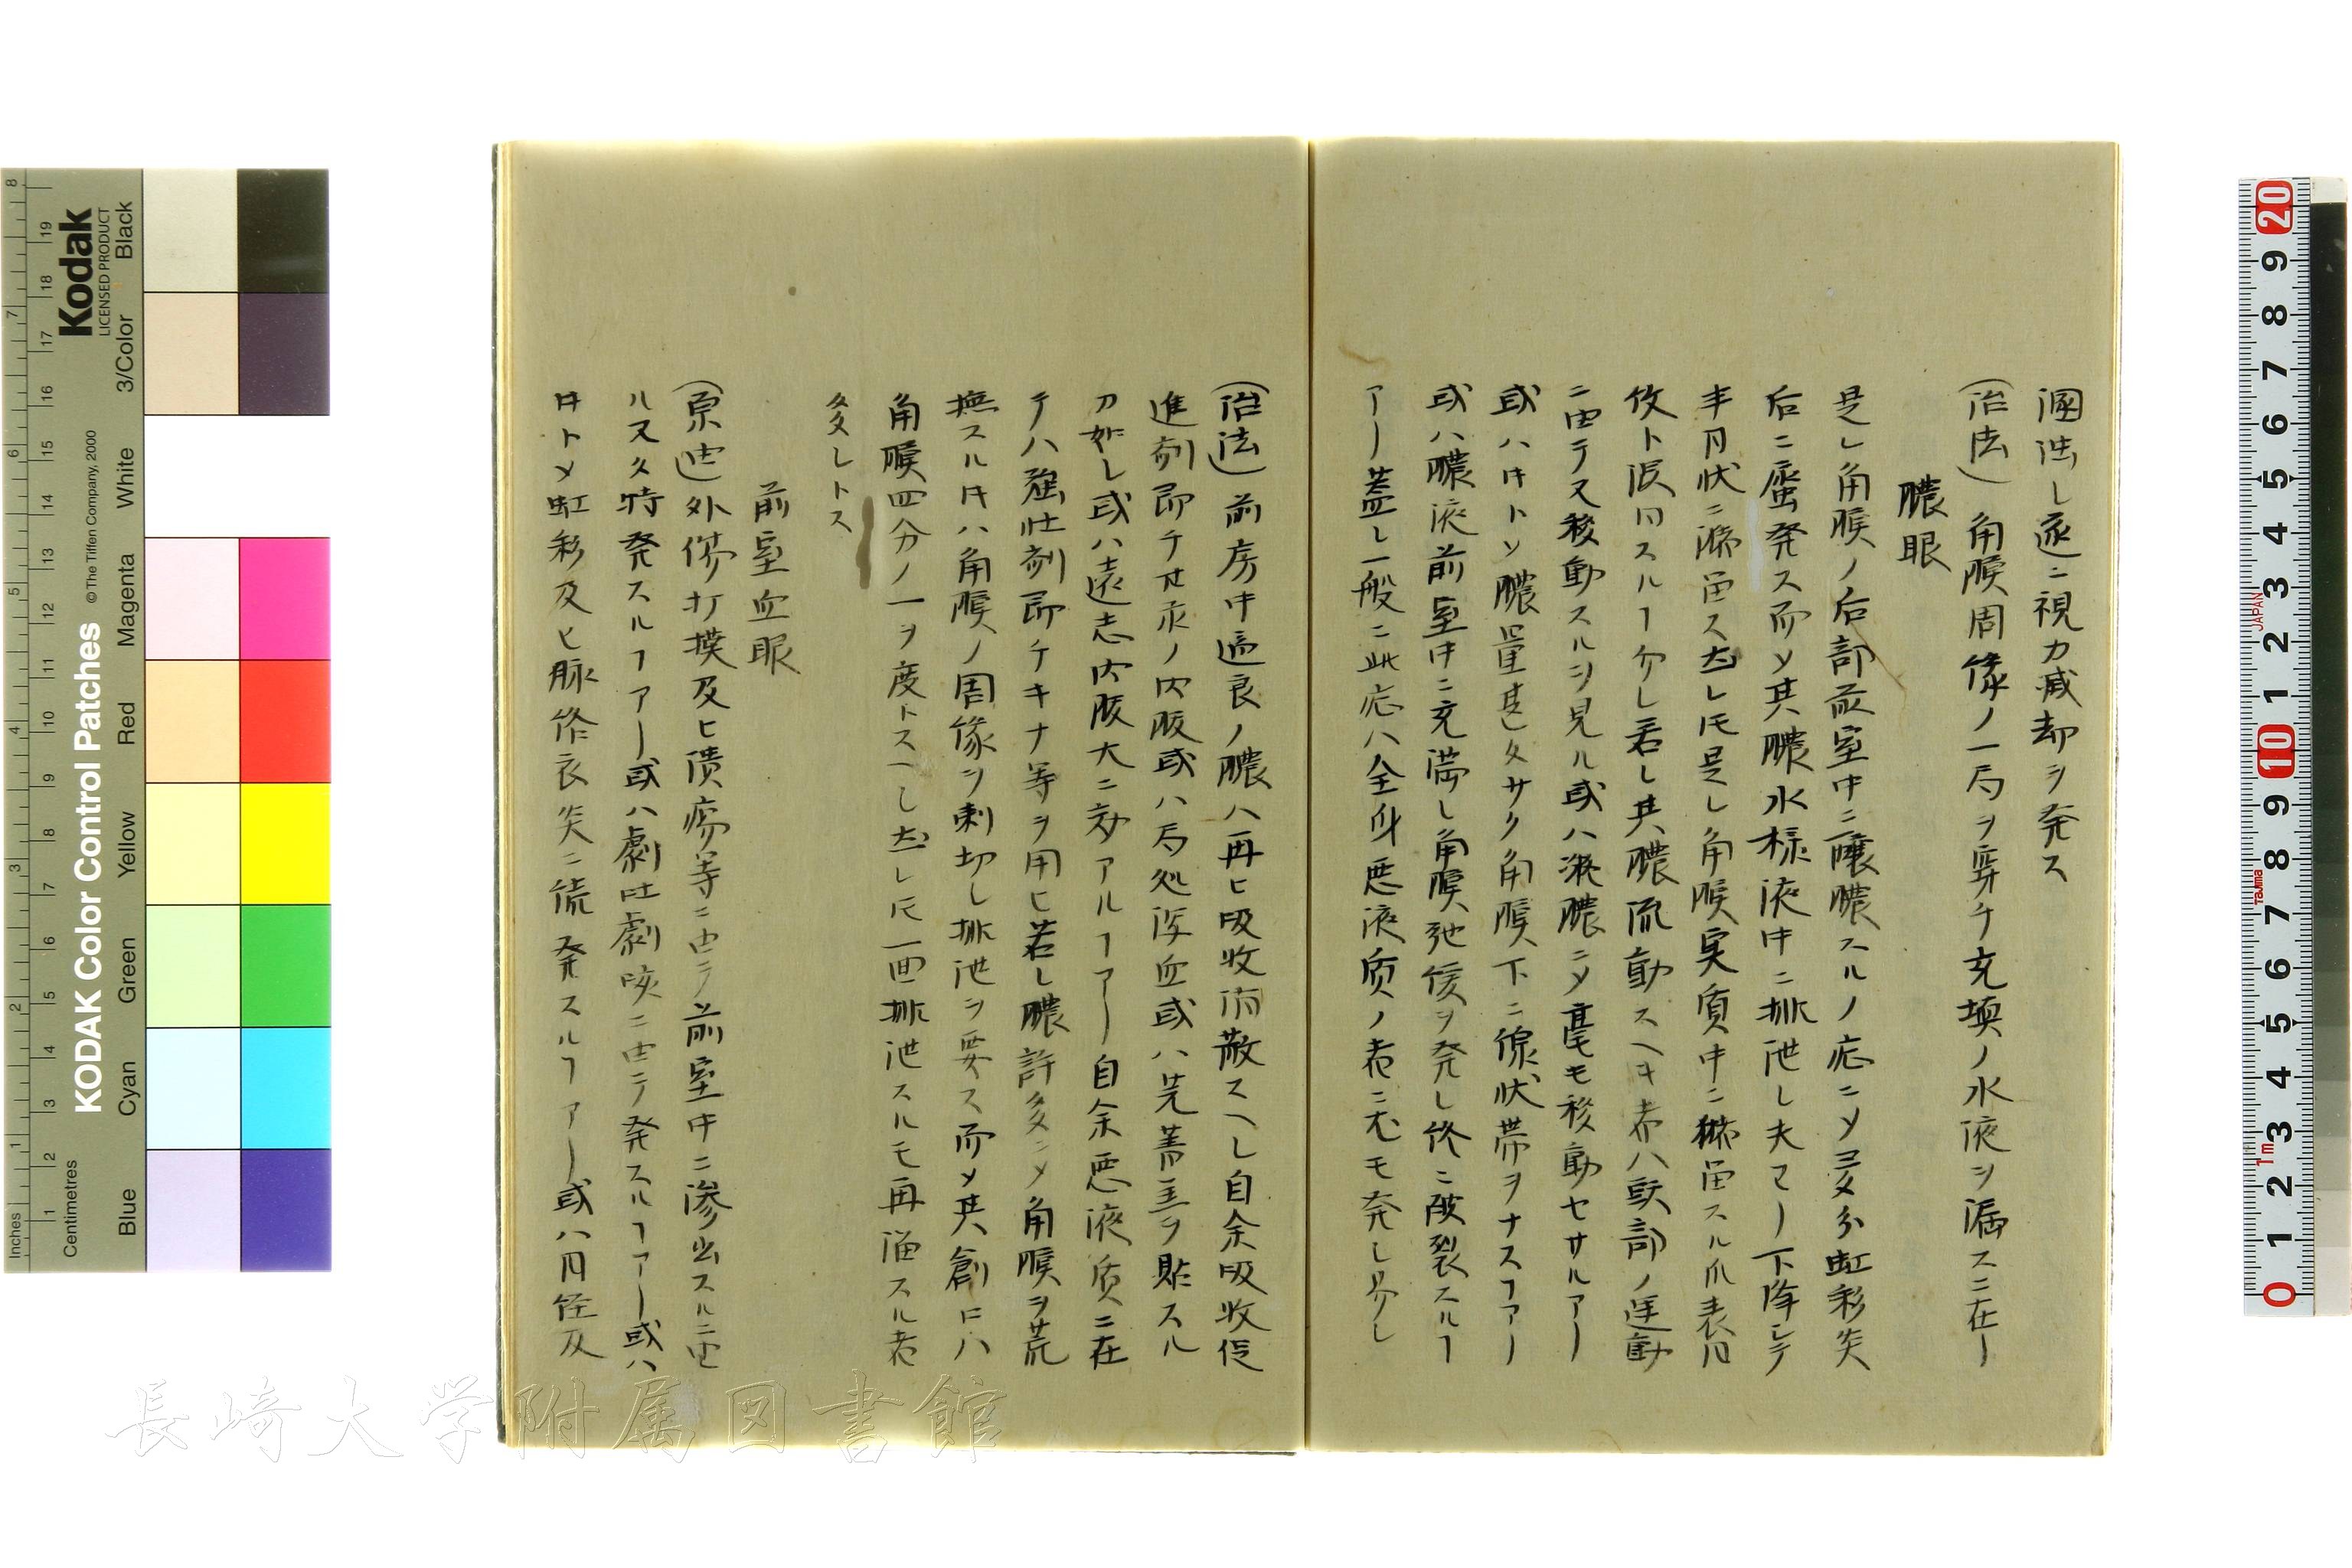 溷濁シ遂ニ視力減却ヲ発ス
(治法)角膜周縁ノ一局ヲ穿チ充填ノ水液ヲ漏スニ在リ
膿眼
是レ角膜ノ后部前室中ニ醸膿スルノ症ニ〆多分虹彩炎
后ニ発ス而〆其膿水様液中ニ排泄シ夫ヨリ下降シテ
半月状ニ瀦留ス然レ𪜈是レ角膜実質中ニ瀦留スル爪表月
仗ト浜同スルヿ勿レ若シ其膿流動スヘキ者ハ頭部ノ運動
ニ由テ又移動スルヲ見ル或ハ凝膿ニ〆毫モ移動セサルアリ
或ハ𪜈トソ膿量甚タサク角膜下ニ線状帯ヲナスヿアリ
或ハ膿液前室中ニ充満シ角膜弛緩ヲ発シ終ニ破裂スルヿ
アリ蓋シ一般ニ此症ハ全身悪液质ノ者ニ尤モ発シ易シ
(治法)前房中過良ノ膿ハ再ヒ吸收消散スヘシ自余吸收促
進剤即チ甘汞ノ内服或ハ局処瀉血或ハ芫菁膏ヲ貼スル
カ如シ或ハ遠志内服大ニ効アルヿアリ自余悪液质ニ在
テハ強壮剤即チキナ等ヲ用ヒ若シ膿許多ニ〆角膜ヲ荒
撫スル𪜈ハ角膜ノ周縁ヲ刺切シ排泄ヲ要ス而〆其創口ハ
角膜四分ノ一ヲ度トスヘシ然レ𪜈一回排泄スルモ再溜スル者
多シトス
前室血眼
(原由)外傷打撲及ヒ潰瘍等ニ由テ前室中ニ滲出スルニ由
ル又タ特発スルヿアリ或ハ劇吐劇咳ニ由テ発スルヿアリ或ハ
𪜈ト〆虹彩及ヒ脉絡衣炎ニ続発スルヿアリ或ハ月経及
KODAK Color Control Patches
© The Tiffen Company, 2000
Kodak
LICENSED PRODUCT
Inches
Centimetres
Blue
Cyan
Green
Yellow
Red
Magenta
White
3/Color
Black
長崎大学附属図書館
JAPAN
Tajima
1m